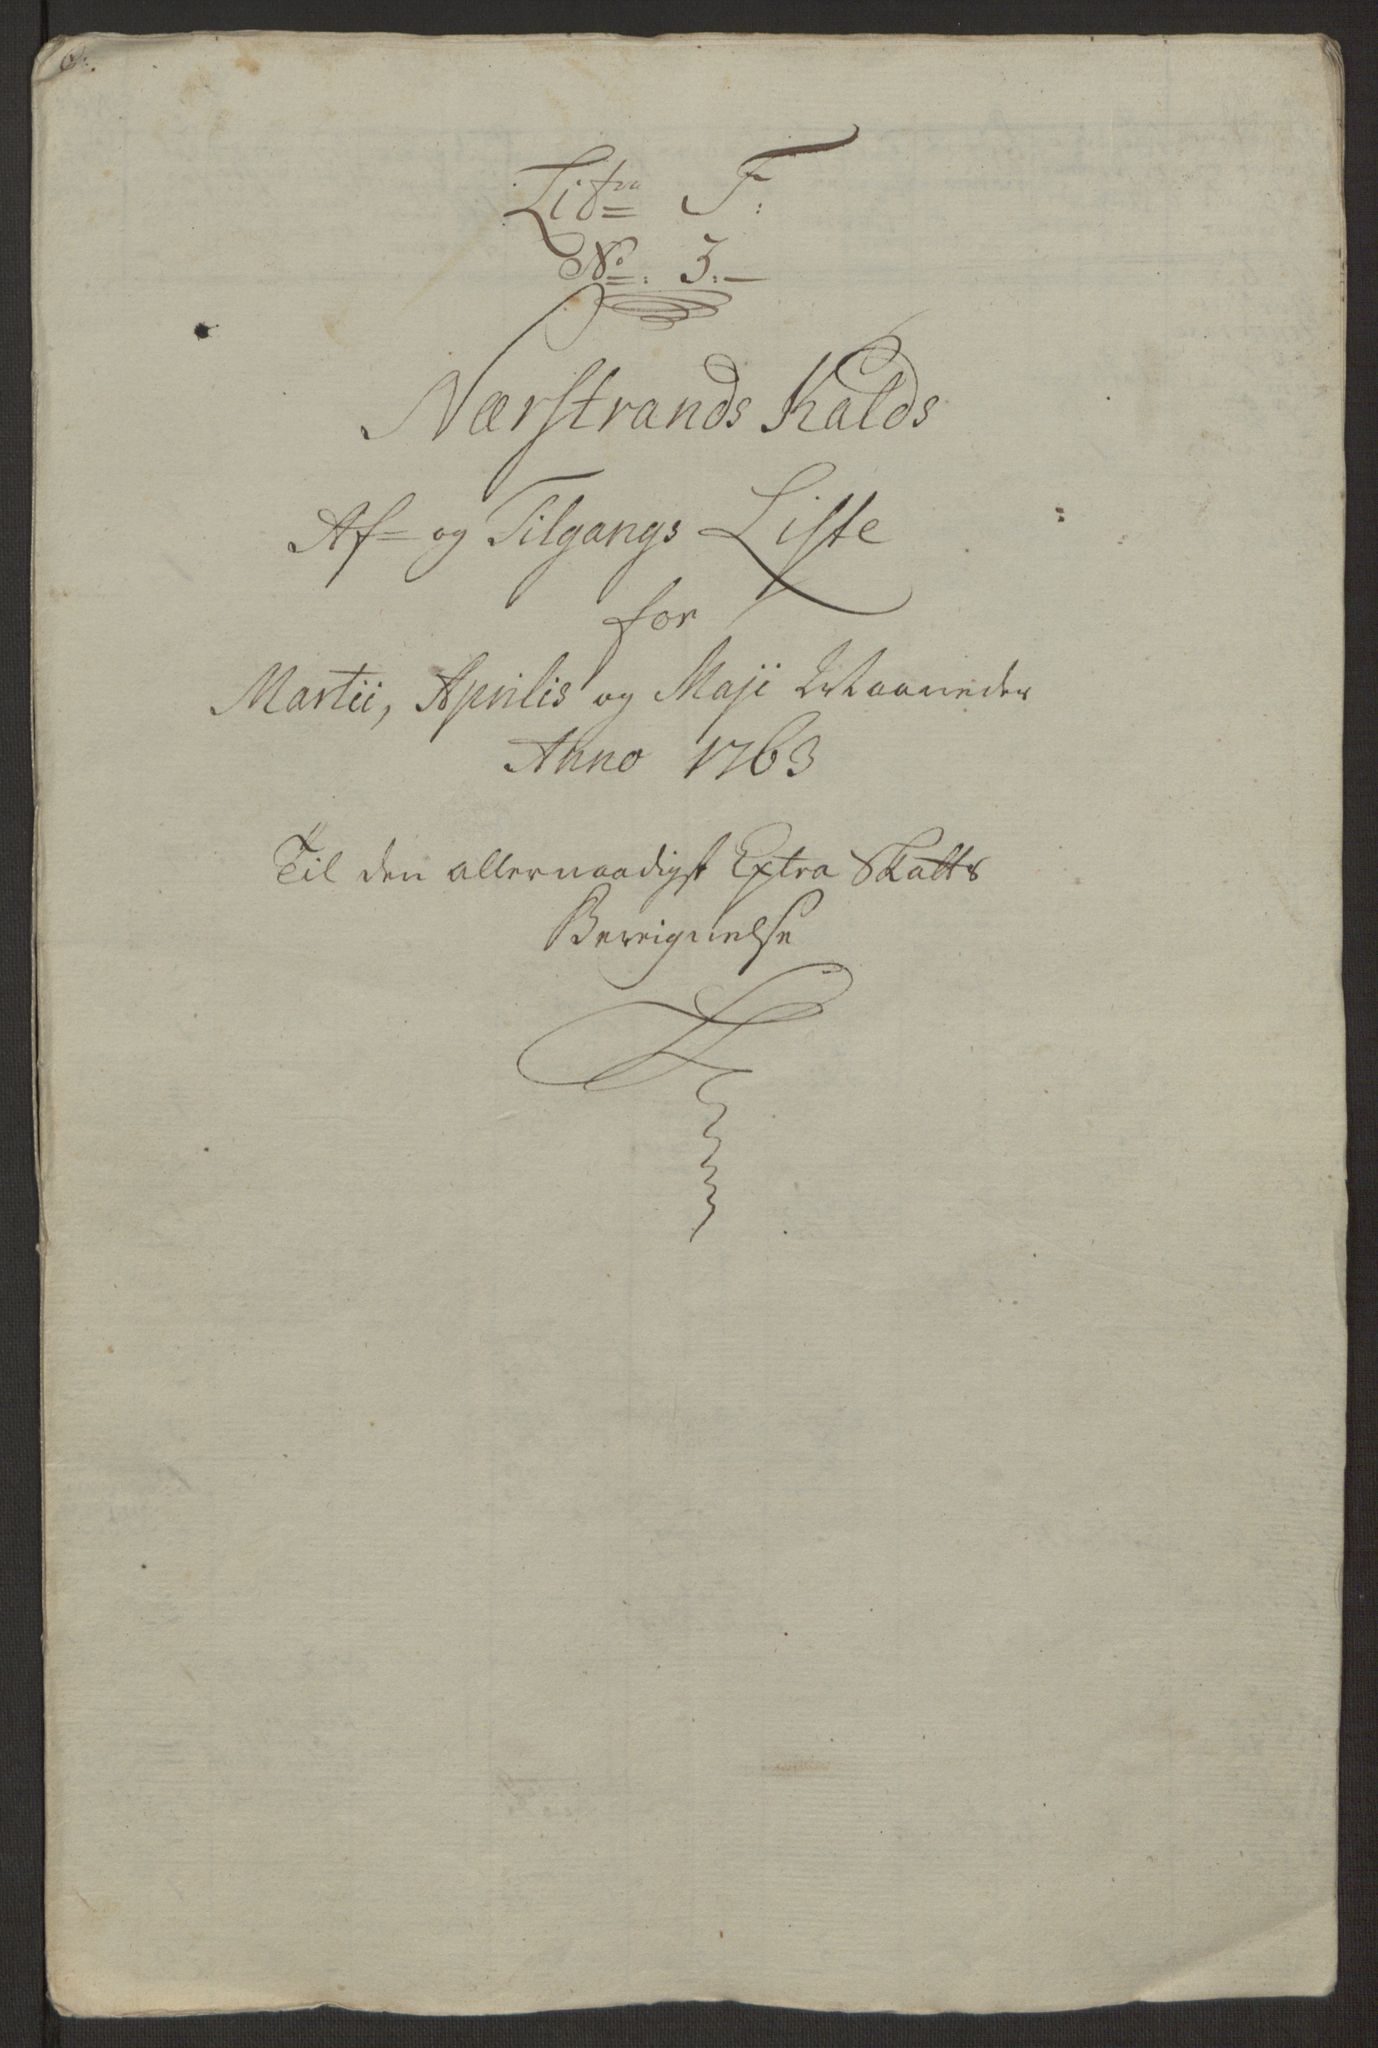 Litra F:
No: 3:
Nærstrands Kalds
Af- og Tilgangs Liste
for
Martii, Aprilis og Maji Maaneder
Anno 1763
Til den allernaadigst Extra Skatts
Bereignelse